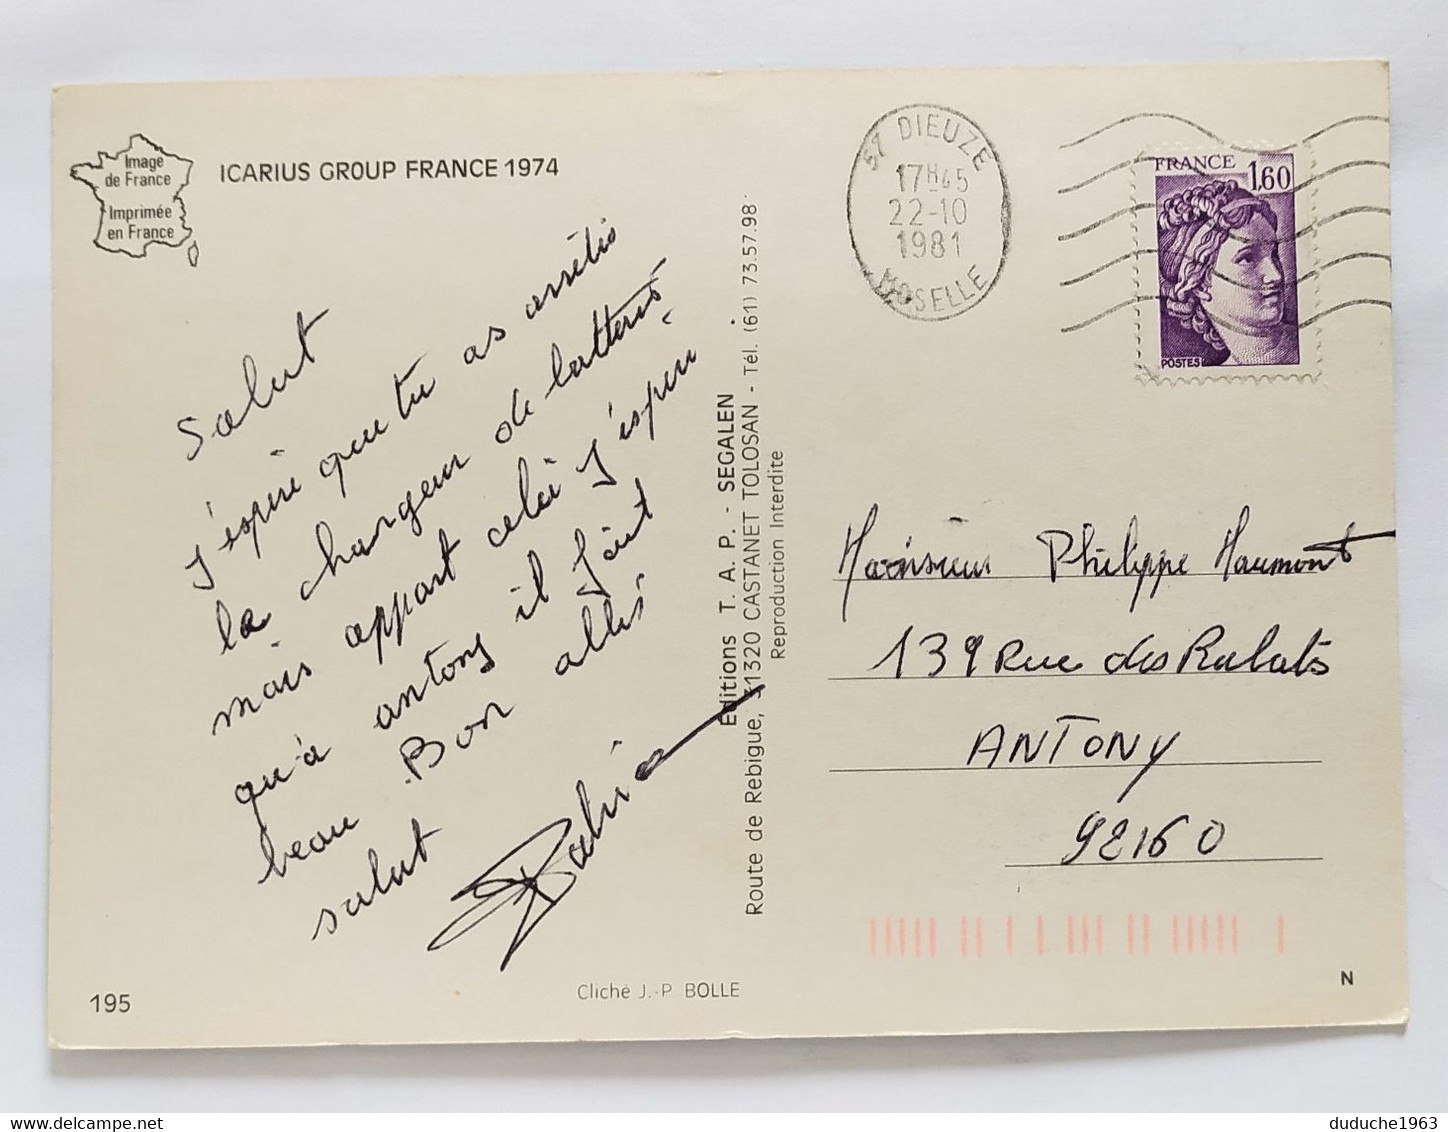 Image
de France
Imprimée
en France
ICARIUS GROUP FRANCE 1974
Salut
J'espère que tu as arrétis
la chargeur de
mais appart celà j'espere
qu'à antony il fait
beau Bon allis
salut
195
Cliché J.-P BOLLE
Editions T. A. P. - SEGALEN
Route de Rebigue, 31320 CASTANET TOLOSAN - Tél. (61) 73.57.98
Reproduction Interdite
57 DIEUZE
17H45
22-10
1981
MOSELLE
FRANCE
1,60
POSTES
Monsieur Philippe Maumont
139 Rue des Rabats
ANTONY
92160
N
duduche1963